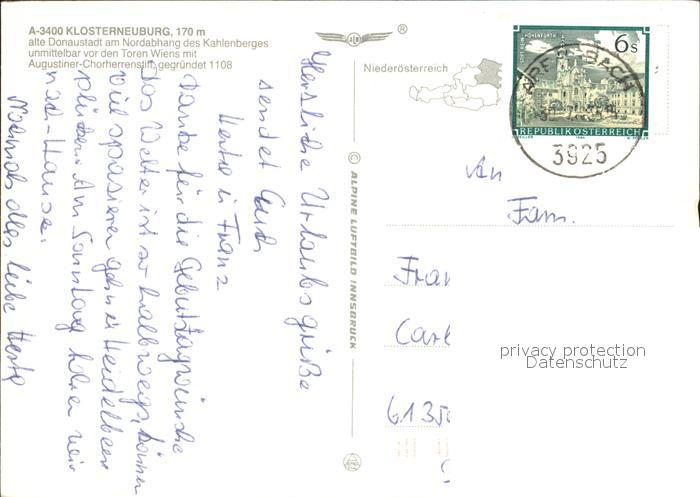 A-3400 KLOSTERNEUBURG, 170 m
alte Donaustadt am Nordabhang des Kahlenberges
unmittelbar vor den Toren Wiens mit
Augustiner-Chorherrenstift gegründet 1108
Herzliche Urlaubsgrüße
sendet Euch
Herta u Franz
Danke für die Geburtstagwünsche
das Wetter ist so halbwegs, können
viel spazieren gehn u Heidelbeer
pflücken. Am Sonntag fahren wir
nach Hause.
Nochmals alles liebe Herta
Niederösterreich
© ALPINE LUFTBILD INNSBRUCK
STIFT HOHENFURTH
6 S
REPUBLIK ÖSTERREICH
3925
An
Fam.
Fran
Carl
6135
privacy protection
Datenschutz